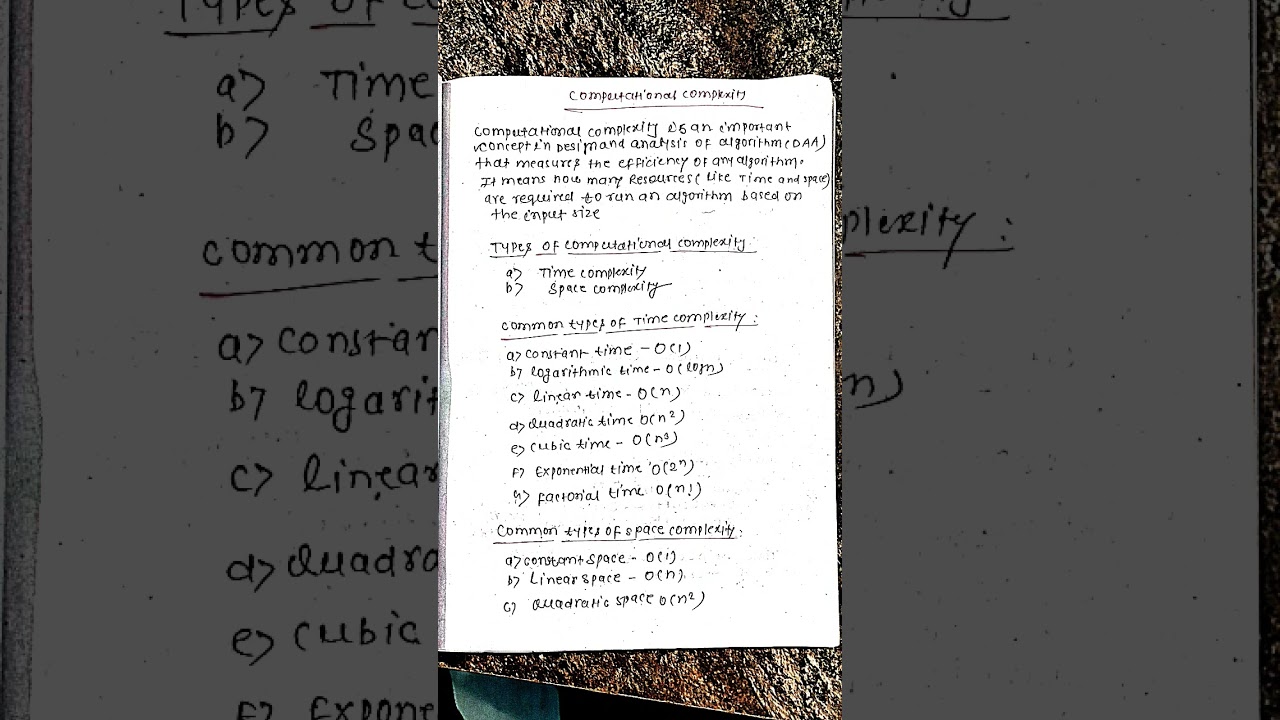 Computational complexity
Computational complexity is an important
concept in Design and analysis of algorithm (DAA)
that measures the efficiency of any algorithm.
It means how many Resources (like Time and space)
are required to run an algorithm based on
the input size
Types of computational complexity:
a) Time complexity
b) Space complexity
Common types of Time complexity:
a) constant time - O(1)
b) logarithmic time - O(logn)
c) linear time - O(n)
d) Quadratic time O(n²)
e) cubic time - O(n³)
F) Exponential time O(2ⁿ)
g) factorial time O(n!)
Common types of space complexity:
a) constant space - O(1)
b) Linear space - O(n)
c) Quadratic space O(n²)
Types of co
a) Time
b) Spac
common t
plexity :
a) constan
b) logarit
n)
c) linear
d) Quadra
e) cubic
F) Expone